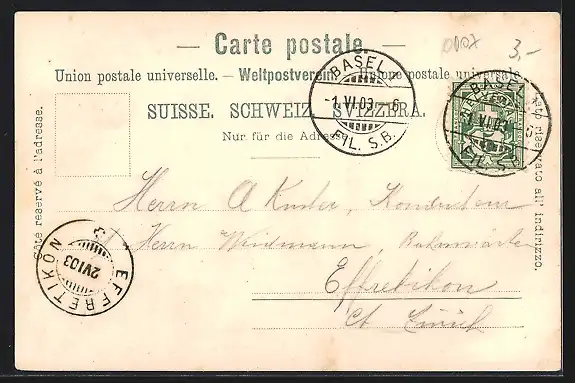 — Carte postale. —
Union postale universelle. — Weltpostverein. — Unione postale universale.
SUISSE. SCHWEIZ. SVIZZERA.
Nur für die Adresse.
Côté réservé à l'adresse.
Lato riservato all' indirizzo.
BASEL
-1.VI.03.-6
FIL. S.B.
BASEL
-1.VI.03.-6
FIL. S.B.
EFFRETIKON
2VI03
3
3,-
Herrn A Kuster, Kondukteur
Herrn Weidmann, Bahnwärter
Effretikon
Ct. Zürich